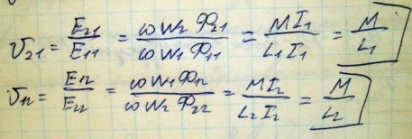 υ₂₁ = E₂₁/E₁₁ = ωw₂Φ₂₁/ωw₁Φ₁₁ = MI₁/L₁I₁ = M/L₁
υ₁₂ = E₁₂/E₂₂ = ωw₁Φ₁₂/ωw₂Φ₂₂ = MI₂/L₂I₂ = M/L₂